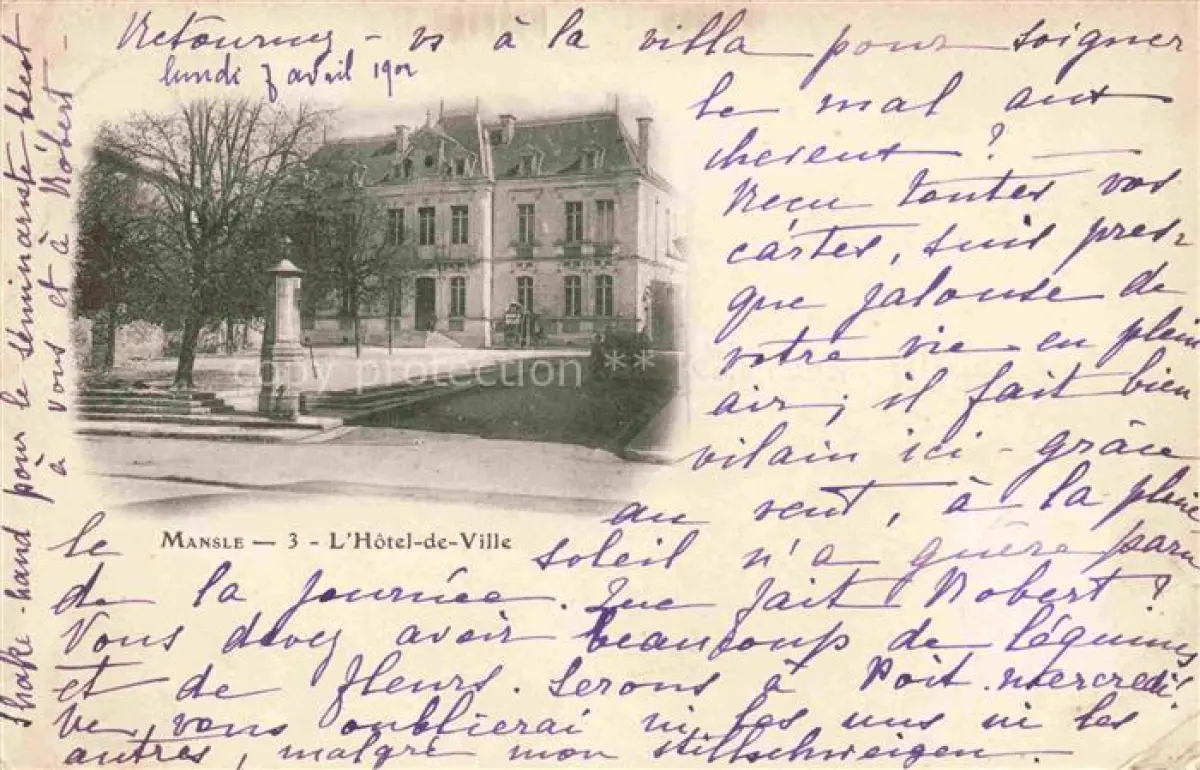 Retournez - vs à la villa pour soigner
lundi 7 avril 1902
le mal aux
cheveux ? —
Reçu toutes vos
cartes, suis pres-
que jalouse de
votre vie en plein
air, il fait bien
vilain ici - grâce
au vent, à la pluie
MANSLE — 3 - L'Hôtel-de-Ville
le soleil n'a guère paru
de la journée. Que fait Robert ?
Vous devez avoir beaucoup de légumes
et de fleurs. Serons à Poit. mercredi !
Ne vous oublierai ni les uns ni les
autres, malgré mon stillschweigen.
Shake-hand pour le séminariste béert -
à vous et à Robert -
copy protection **